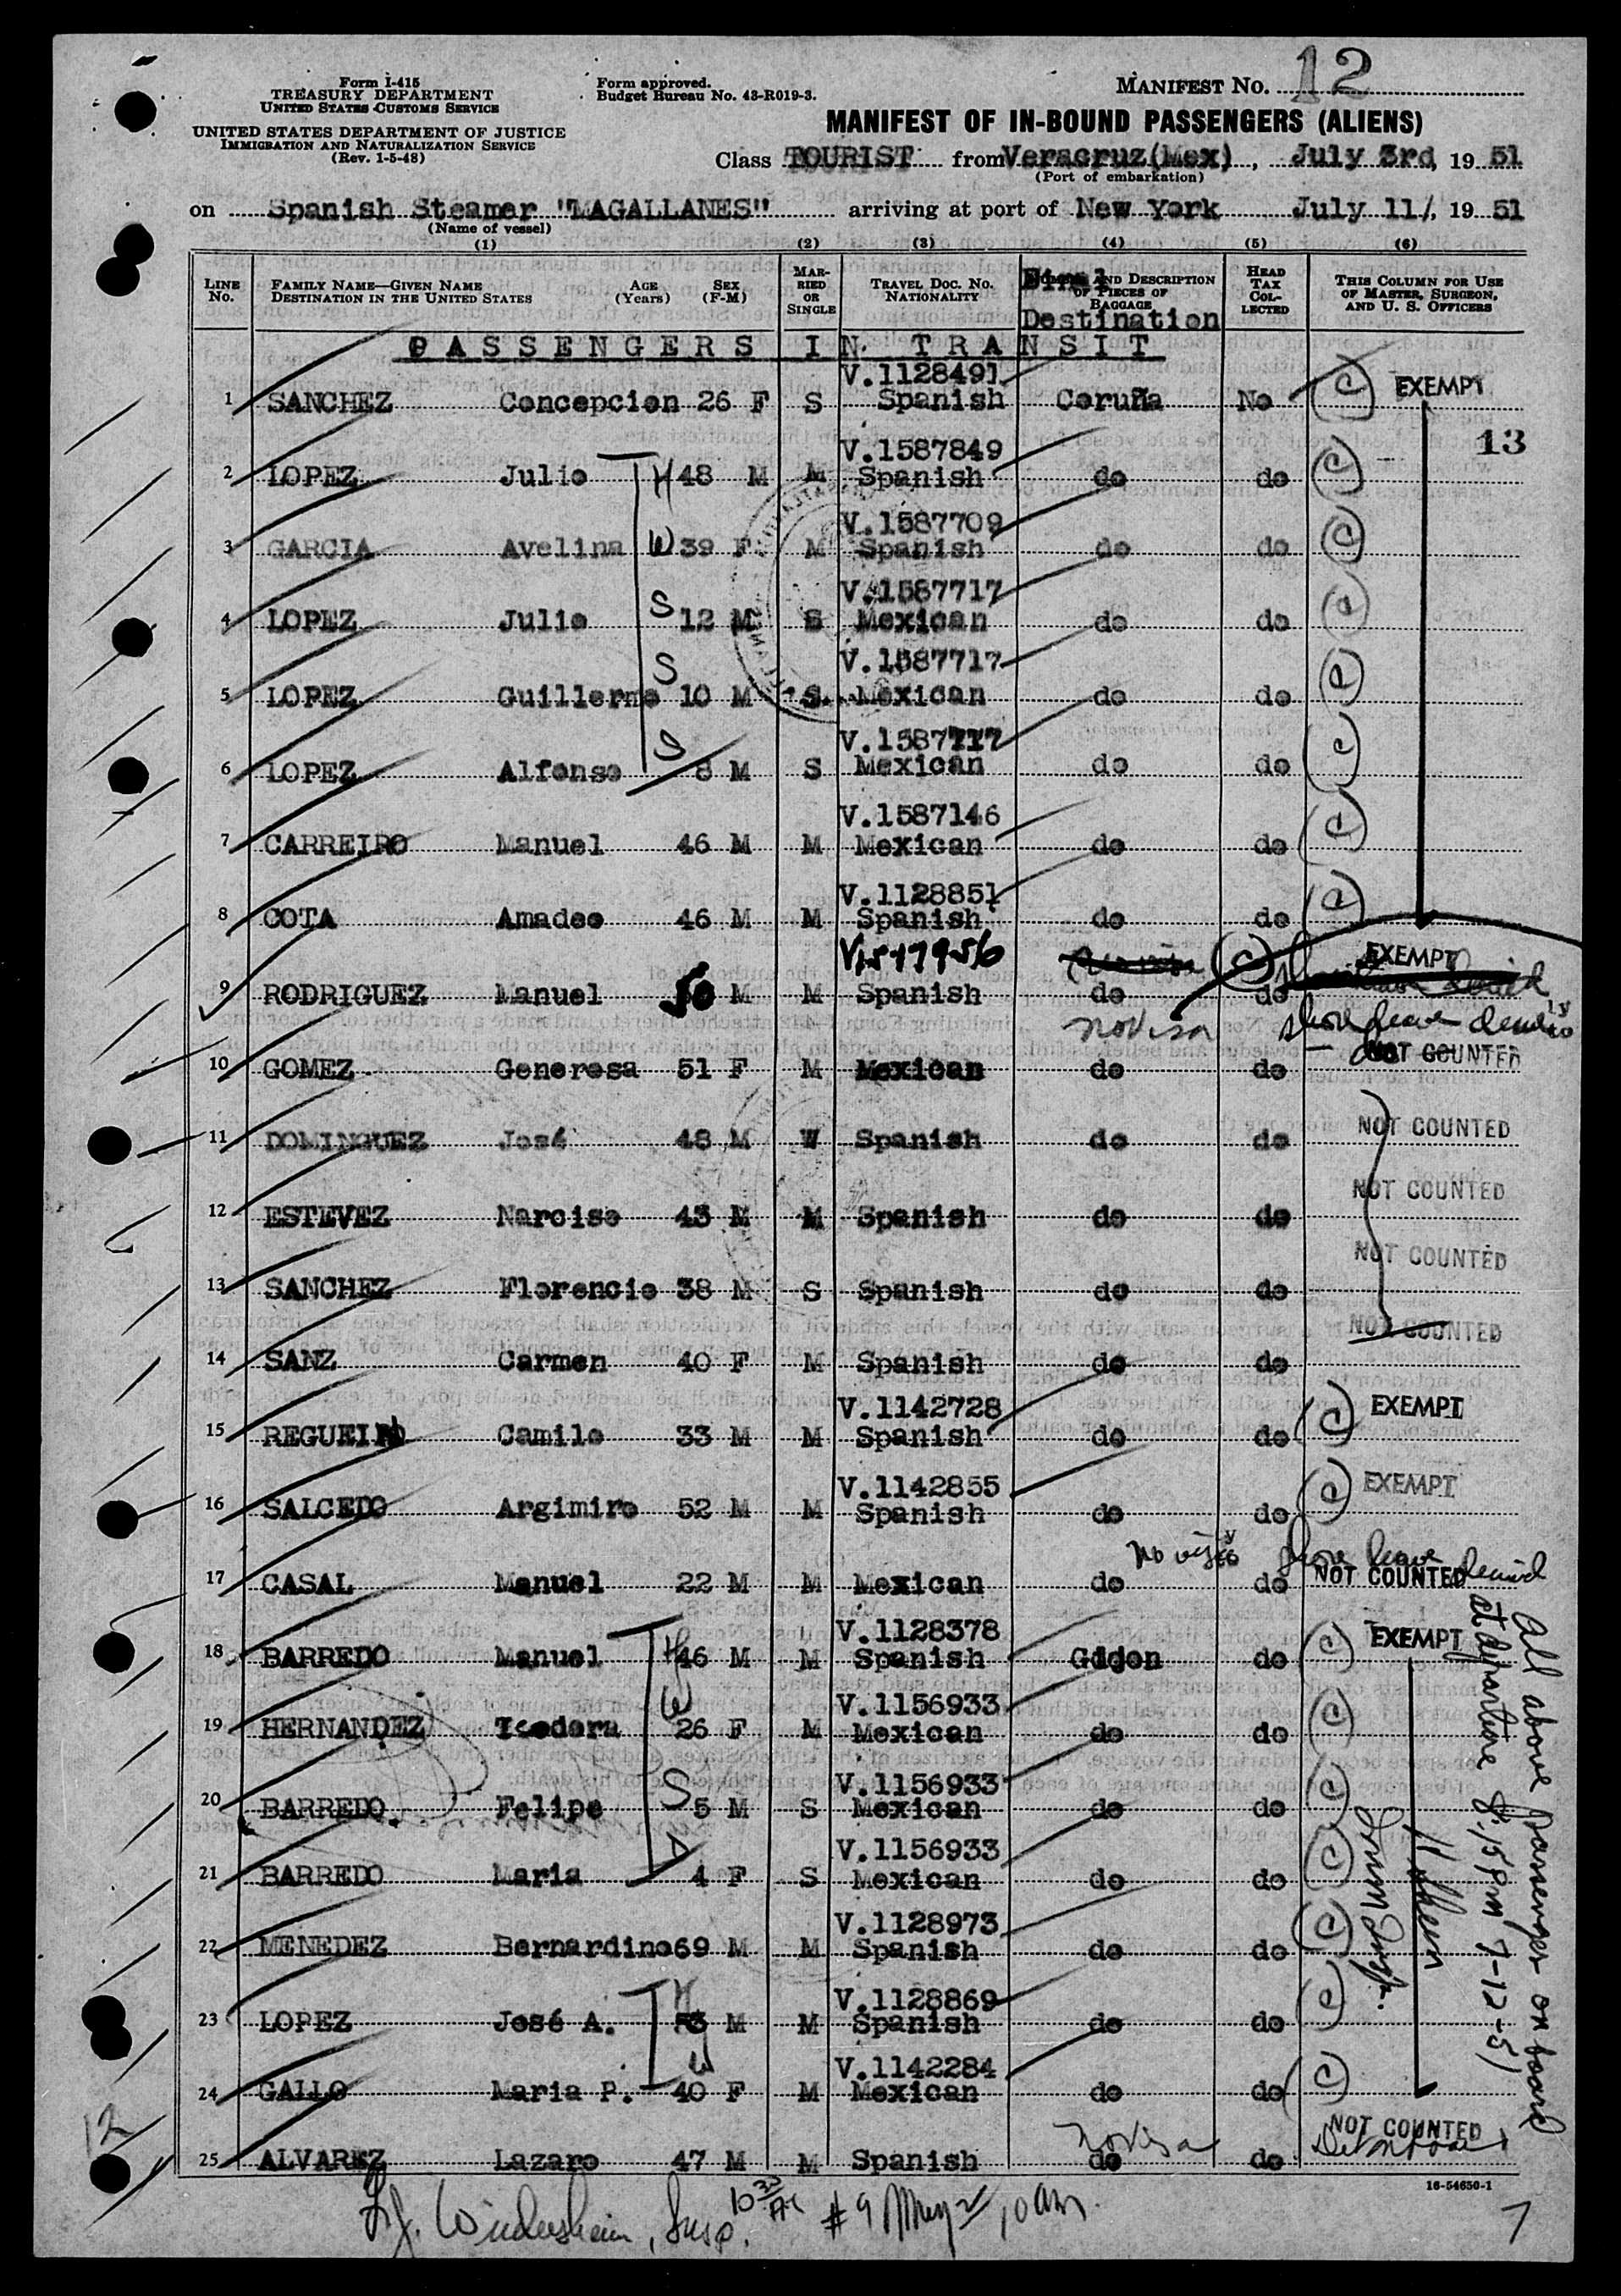 Form I-415
TREASURY DEPARTMENT
UNITED STATES CUSTOMS SERVICE
UNITED STATES DEPARTMENT OF JUSTICE
IMMIGRATION AND NATURALIZATION SERVICE
(Rev. 1-5-48)
Form approved.
Budget Bureau No. 43-R019-3.
MANIFEST No. 12
MANIFEST OF IN-BOUND PASSENGERS (ALIENS)
Class TOURIST from Veracruz(Mex), July 3rd, 19 51
(Port of embarkation)
on Spanish Steamer "MAGALLANES" arriving at port of New York July 11/, 19 51
(Name of vessel)
(1) (2) (3) (4) (5) (6)
LINE No. FAMILY NAME—GIVEN NAME DESTINATION IN THE UNITED STATES AGE (Years) SEX (F-M) MARRIED OR SINGLE TRAVEL DOC. No. NATIONALITY AND DESCRIPTION OF PIECES OF BAGGAGE HEAD TAX COLLECTED THIS COLUMN FOR USE OF MASTER, SURGEON, AND U. S. OFFICERS
Final Destination
PASSENGERS IN TRANSIT
V.1128491
1 SANCHEZ Concepcion 26 F S Spanish Coruña No C EXEMPT
13
V.1587849
2 LOPEZ Julio H 48 M M Spanish do do C
V.1587709
3 GARCIA Avelina W 39 F M Spanish do do C
V.1587717
4 LOPEZ Julio S 12 M S Mexican do do C
V.1587717
5 LOPEZ Guillermo S 10 M S Mexican do do C
V.1587717
6 LOPEZ Alfonso S 8 M S Mexican do do C
V.1587146
7 CARREIRO Manuel 46 M M Mexican do do C
V.1128851
8 COTA Amadeo 46 M M Spanish do do C
EXEMPT
9 RODRIGUEZ Manuel 50 M M Spanish do do C
no visa shore leave denied
NOT COUNTED
10 GOMEZ Generosa 51 F M Mexican do do
11 DOMINGUEZ José 48 M W Spanish do do NOT COUNTED
NOT COUNTED
12 ESTEVEZ Narciso 43 M M Spanish do do
NOT COUNTED
13 SANCHEZ Florencio 38 M S Spanish do do
NOT COUNTED
14 SANZ Carmen 40 F M Spanish do do
V.1142728
15 REGUEIRO Camilo 33 M M Spanish do do C EXEMPT
V.1142855
16 SALCEDO Argimiro 52 M M Spanish do do C EXEMPT
no visa shore leave denied
17 CASAL Manuel 22 M M Mexican do do NOT COUNTED
V.1128378
18 BARREDO Manuel H 46 M M Spanish Gijon do C EXEMPT
V.1156933
19 HERNANDEZ Teodora W 26 F M Mexican do do C
V.1156933
20 BARREDO Felipe S 5 M S Mexican do do C
V.1156933
21 BARREDO Maria D 4 F S Mexican do do C
V.1128973
22 MENEDEZ Bernardino 69 M M Spanish do do C
V.1128869
23 LOPEZ José A. H 53 M M Spanish do do C
V.1142284
24 GALLO Maria P. W 40 F M Mexican do do C
NOT COUNTED
no visa
25 ALVAREZ Lazaro 47 M M Spanish do do
All above passenger on board
at departure 8:15 PM 7-12-51
12
16-54650-1
7